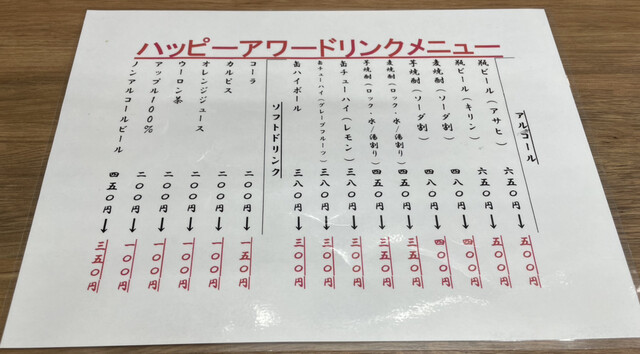 ハッピーアワードリンクメニュー
アルコール
瓶ビール(アサヒ) 六五〇円→五〇〇円
瓶ビール(キリン) 六五〇円→五〇〇円
麦焼酎(ソーダ割) 四八〇円→四〇〇円
芋焼酎(ソーダ割) 四八〇円→四〇〇円
麦焼酎(ロック・水/湯割り) 四五〇円→三五〇円
芋焼酎(ロック・水/湯割り) 四五〇円→三五〇円
缶チューハイ(レモン) 三八〇円→三〇〇円
缶チューハイ(グレープフルーツ) 三八〇円→三〇〇円
缶ハイボール 三八〇円→三〇〇円
ソフトドリンク
コーラ 二〇〇円→一五〇円
カルピス 二〇〇円→一〇〇円
オレンジジュース 二〇〇円→一〇〇円
ウーロン茶 二〇〇円→一〇〇円
アップル100% 二〇〇円→一〇〇円
ノンアルコールビール 四五〇円→三五〇円